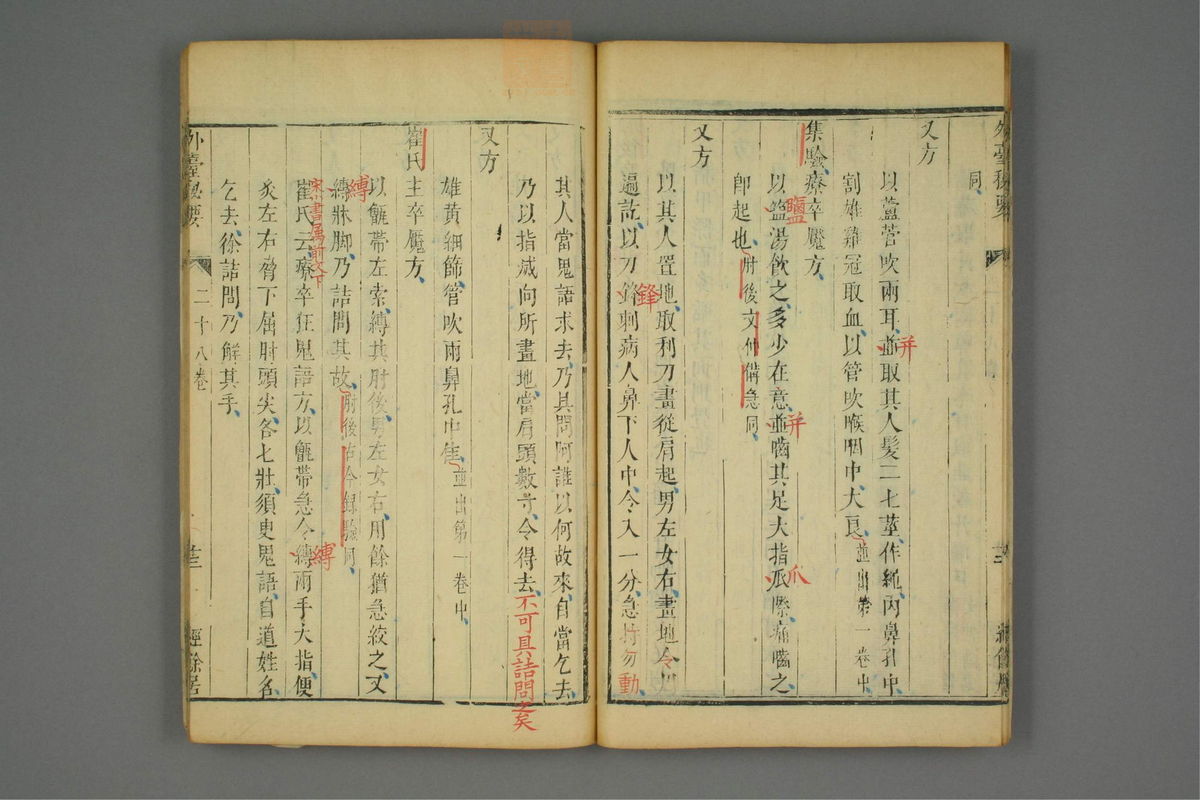 同
又方
以蘆菅吹兩耳並取其人髮二七莖作繩內鼻孔中
并
割雄雞冠取血以管吹喉咽中大良並出第一卷中
集驗療卒魘方
以盬湯飲之多少在意並嚙其足大指爪際痛嚙之
鹽
并
爪
即起也肘後文仲備急同
又方
以其人置地取利刀畫從肩起男左女右畫地令以
遍訖以刀鋒刺病人鼻下人中令入一分急持勿動
鋒
其人當鬼語求去乃具問阿誰以何故來自當乞去
乃以指滅向所畫地當肩頭數寸令得去不可具詰問之矣
又方
雄黃細篩管吹兩鼻孔中佳並出第一卷中
崔氏主卒魘方
以甑帶左索縛其肘後男左女右用餘猶急絞之又
縛牀腳乃詰問其故肘後古今録驗同
縛
宋本書属前文下
崔氏云療卒狂鬼語方以甑帶急令縛兩手大指便
縛
炙左右脅下屈肘頭尖各七壯須臾鬼語自道姓名
乞去徐詰問乃解其手
外臺秘要
二十八卷
廿三
經餘居